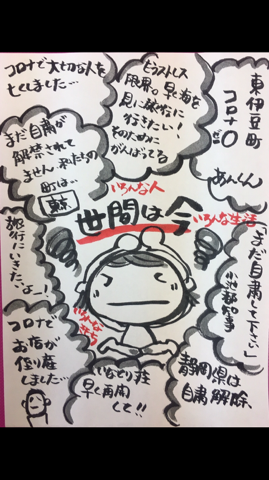 コロナで大切な人を
亡くしました…
もうストレス
限界。早く海を
見に旅行に
行きたい！
そのために
がんばってる
東伊豆町
コロナ
0
あんしん
まだ自粛が
解禁されて
ません。私たちの
町は…
東京
いろんな人
世間は今
いろんな生活
旅行にいきたいよ…！
「まだ自粛して下さい」
小池都知事
コロナで
お店が
倒産
しました…
いなとり荘
早く再開
して!!
静岡県は
自粛解除